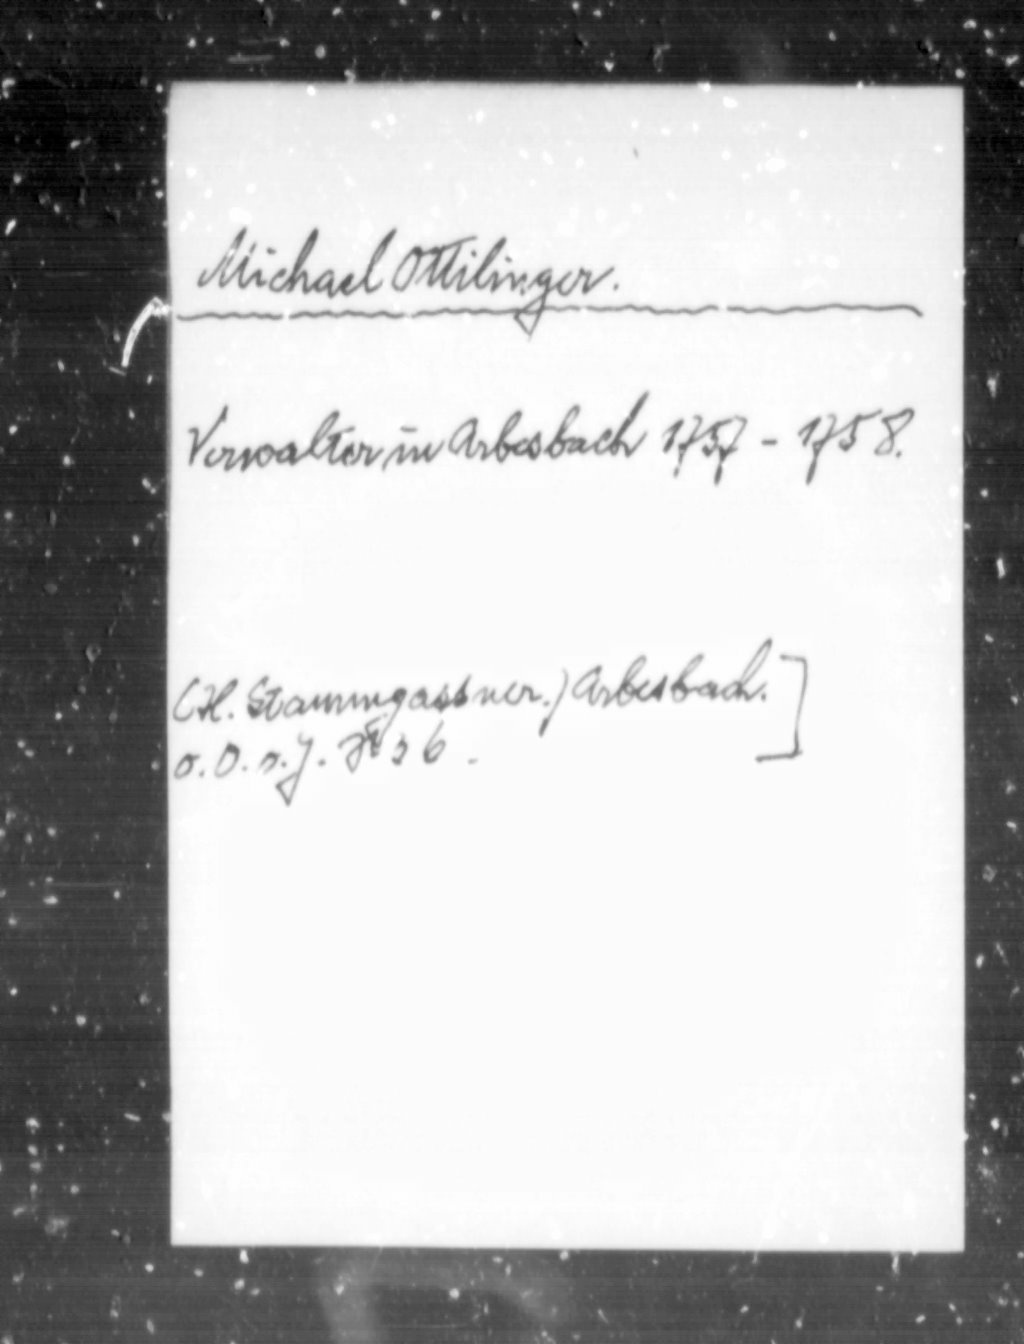 Michael Ottilinger.
Verwalter in Arbesbach 1757 - 1758.
(H. Stammgassner.) Arbesbach.]
o. O. o. J. 26.